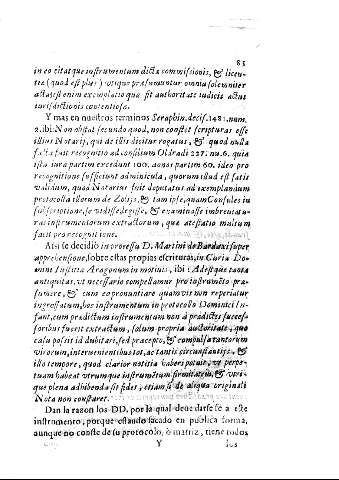 85
in eo citatque instrumentum dicta commissionis, & licen-
tia (quod est plus) utique præsumuntur omnia solemniter
acta, est enim exemplatio quæ fit authoritate iudicis actus
iurisdictionis contentiosæ.
Y mas en nuestros terminos Seraphin. decis. 1481. num.
2. ibi: Non obstat secundo quod, non constet scripturas esse
illius Notarij, qui de illis dicitur rogatus, & quod nulla
facta fuit recognitio ad consilium Oldradi 227. nu. 6. quia
ista iura partim excedunt 100. annos partim 60. ideo pro
recognitione sufficiunt adminicula, quorum illud est satis
validum, quod Notarius fuit deputatus ad exemplandum
protocolla illorum de & tam ipse, quam Consules in
subscriptione, se vidisse, legisse, & examinasse imbreuiatu-
ras instrumentorum extractorum, quæ atestatio multum
facit pro recognitione.
Assi se decidiò in processu D. Martini de Bardaxi super
apprehensione, sobre estas propias escrituras, in Curia Do-
mini Iustitiæ Aragonum in motiuis, ibi: Adestque tanta
antiquitas, ut necessario compellamur pro instrumento præ-
sumere, & cum coponuntiare quamvis non reperiatur
ingrossatum, hoc instrumentum in protocollo Dominici In-
fant, cum prædictum instrumentum non à prædictis succes-
soribus fuerit extractum, solum propria authoritate, quo
casu posset id dubitari, sed præcepto, & compulsa tantorum
virorum, interuenientibus tot, ac tantis circunstantijs, &
illo tempore, quod clarior notitia haberi potuit,
tuam habeat utrumque instrumentum firmitatem, & utri-
que plena adhibenda sit fides, etiam si de aliqua originali
Nota non constaret.
Dan la razon los DD. por la qual deue darsele a este
instrumento, porque estando sacado en publica forma,
aunque no conste de su protocolo, ò matriz, tiene todos
Y los